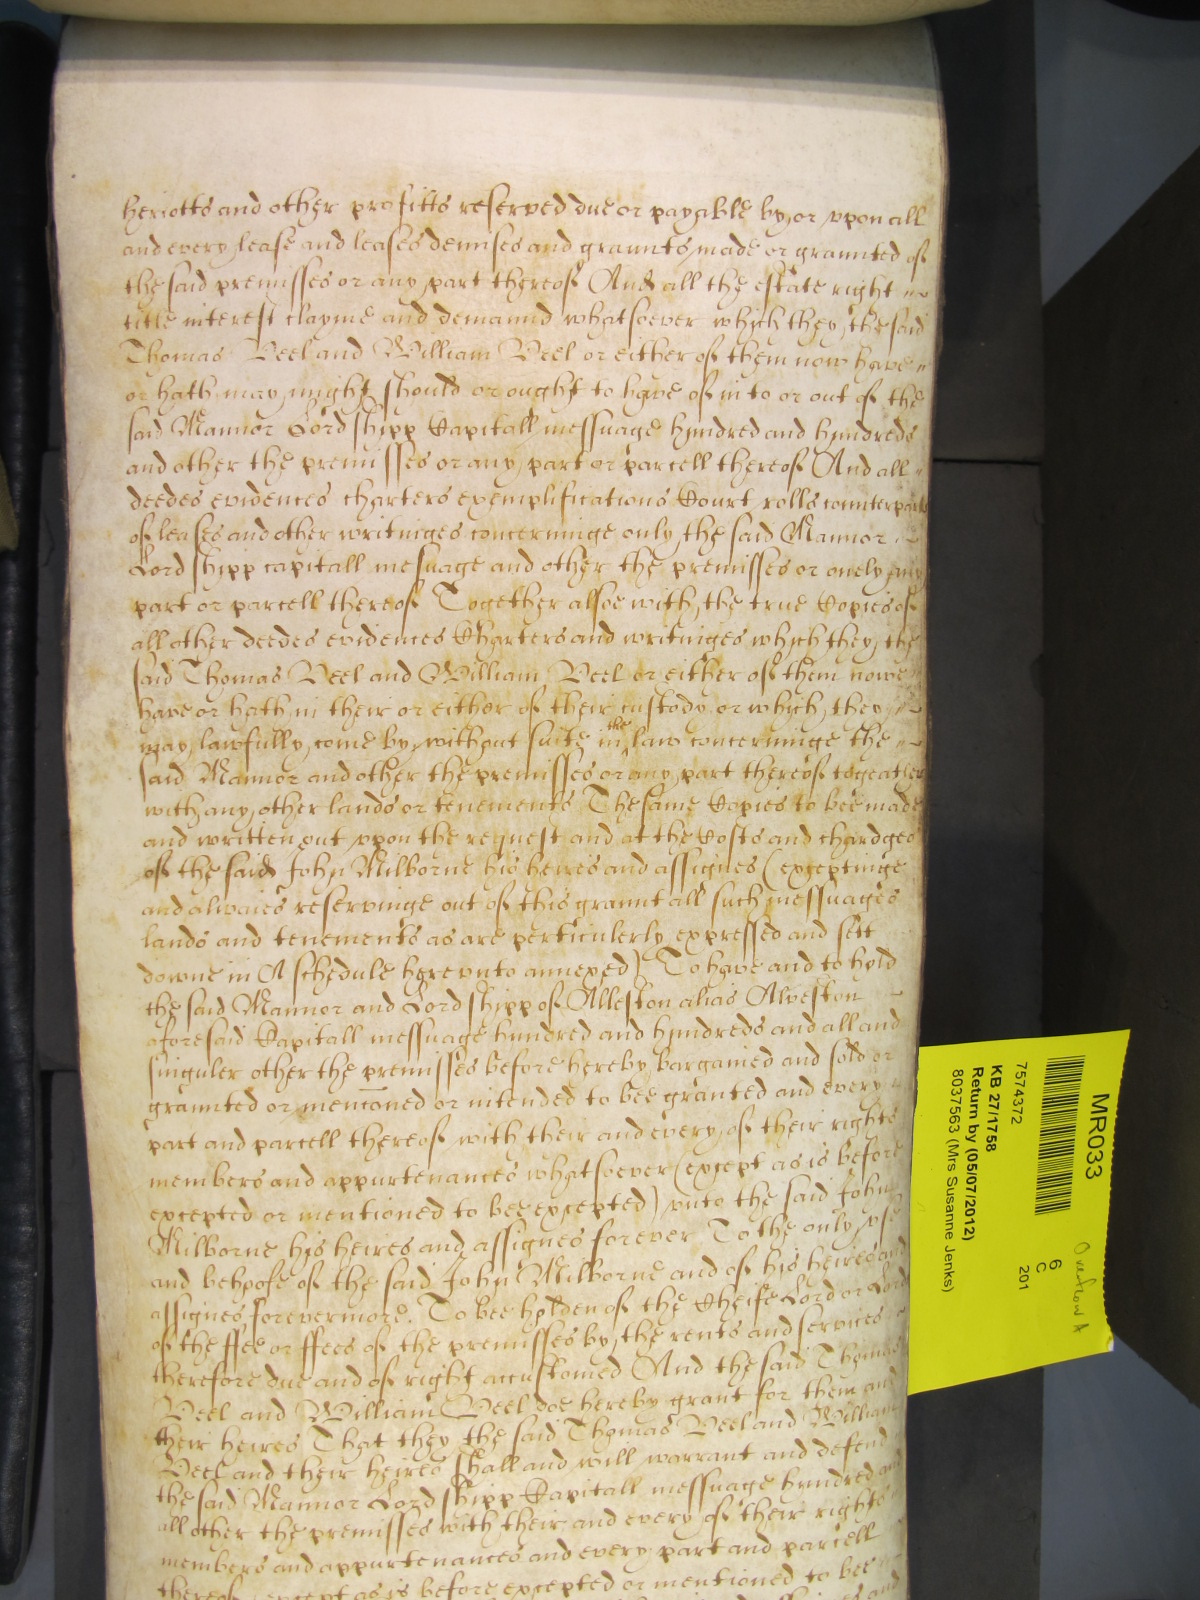 heriotts and other profitts reserved due or payable by or vpon all
and every lease and leases demises and graunts made or graunted of
the said premisses or any part thereof And all the estate right
title interest clayme and demaund whatsoever which they the said
Thomas Veel and William Veel or either of them now have
or hath may might should or ought to have of in to or out of the
said Mannor Lordshipp Capitall messuage hundred and hundreds
and other the premisses or any part or parcell thereof And all
deedes evidences charters exemplifications Court rolls counterparts
of leases and other writinges concerninge only the said Mannor
Lordshipp capitall messuage and other the premisses or onely any
part or parcell thereof Together alsoe with the true Copies of
all other deedes evidences Charters and writinges which they the
said Thomas Veel and William Veel or either of them nowe
have or hath in their or either of their custody or which they
may lawfully come by without suite in the law concerninge the
said Mannor and other the premisses or any part thereof togeather
with any other lands or tenements The same Copies to bee made
and written out vpon the request and at the Costs and chardges
of the said John Milborne his heires and assignes (exceptinge
and alwaies reservinge out of this graunt all such messuages
lands and tenements as are perticulerly expressed and sett
downe in A schedule herevnto annexed) To have and to hold
the said Mannor and Lordshipp of Alleston alias Alveston
aforesaid Capitall messuage hundred and hundreds and all and
singuler other the premisses before hereby bargained and sold or
graunted or mencioned or intended to bee granted and every
part and parcell thereof with their and every of their rights
members and appurtenances whatsoever (except as is before
excepted or mentioned to bee excepted) vnto the said John
Milborne his heires and assignes forever To the only vse
and behoofe of the said John Milborne and of his heires and
assignes forevermore. To bee holden of the Cheife Lord or Lords
of the ffee or ffees of the premisses by the rents and services
therefore due and of right accustomed And the said Thomas
Veel and William Veel doe hereby grant for them and
their heires That they the said Thomas Veel and William
Veel and their heires shall and will warrant and defend
the said Mannor Lordshipp Capitall messuage hundred and
all other the premisses with their and every of their rights
members and appurtenances and every part and parcell
thereof except as is before excepted or mentioned to bee
MR033
7574372
KB 27/1758
Return by (05/07/2012)
8037563 (Mrs Susanne Jenks)
6
C
201
Overflow A